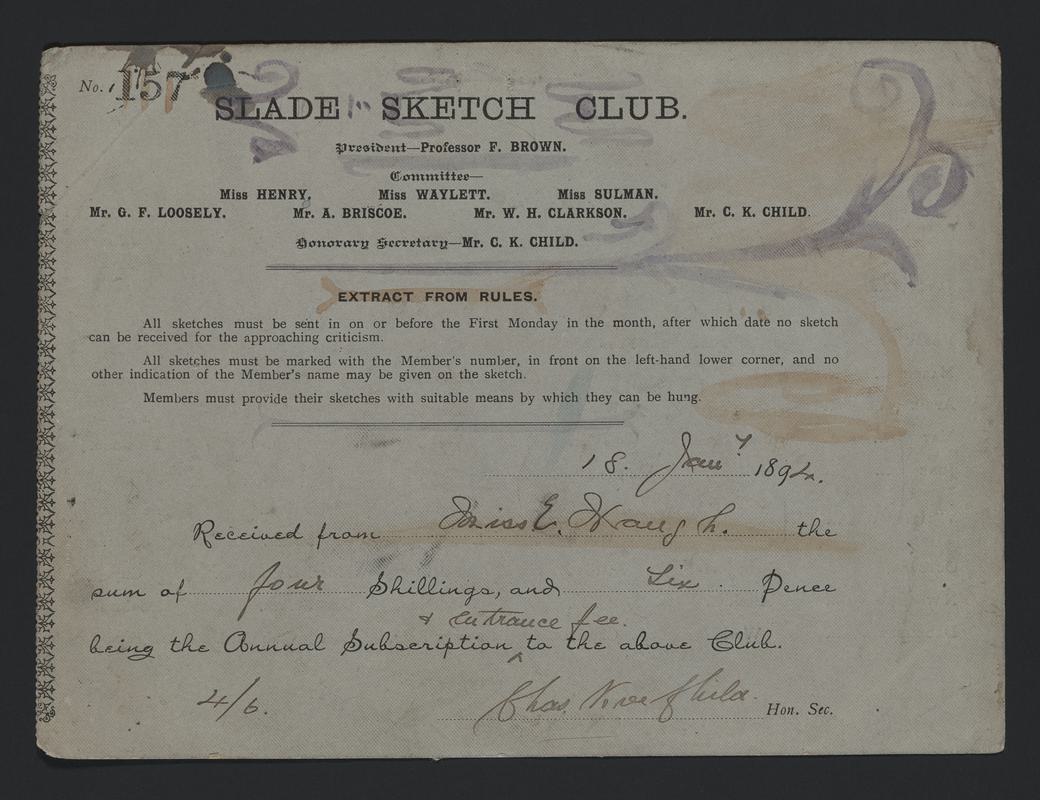 No. 157
SLADE SKETCH CLUB.
President—Professor F. BROWN.
Committee—
Miss HENRY. Miss WAYLETT. Miss SULMAN.
Mr. G. F. LOOSELY. Mr. A. BRISCOE. Mr. W. H. CLARKSON. Mr. C. K. CHILD.
Honorary Secretary—Mr. C. K. CHILD.
EXTRACT FROM RULES.
All sketches must be sent in on or before the First Monday in the month, after which date no sketch
can be received for the approaching criticism.
All sketches must be marked with the Member's number, in front on the left-hand lower corner, and no
other indication of the Member's name may be given on the sketch.
Members must provide their sketches with suitable means by which they can be hung.
18. Jany 1894.
Received from Miss E. Waugh. the
sum of four Shillings, and Six Pence
& entrance fee.
being the Annual Subscription ^ to the above Club.
4/6. Chas Child. Hon. Sec.